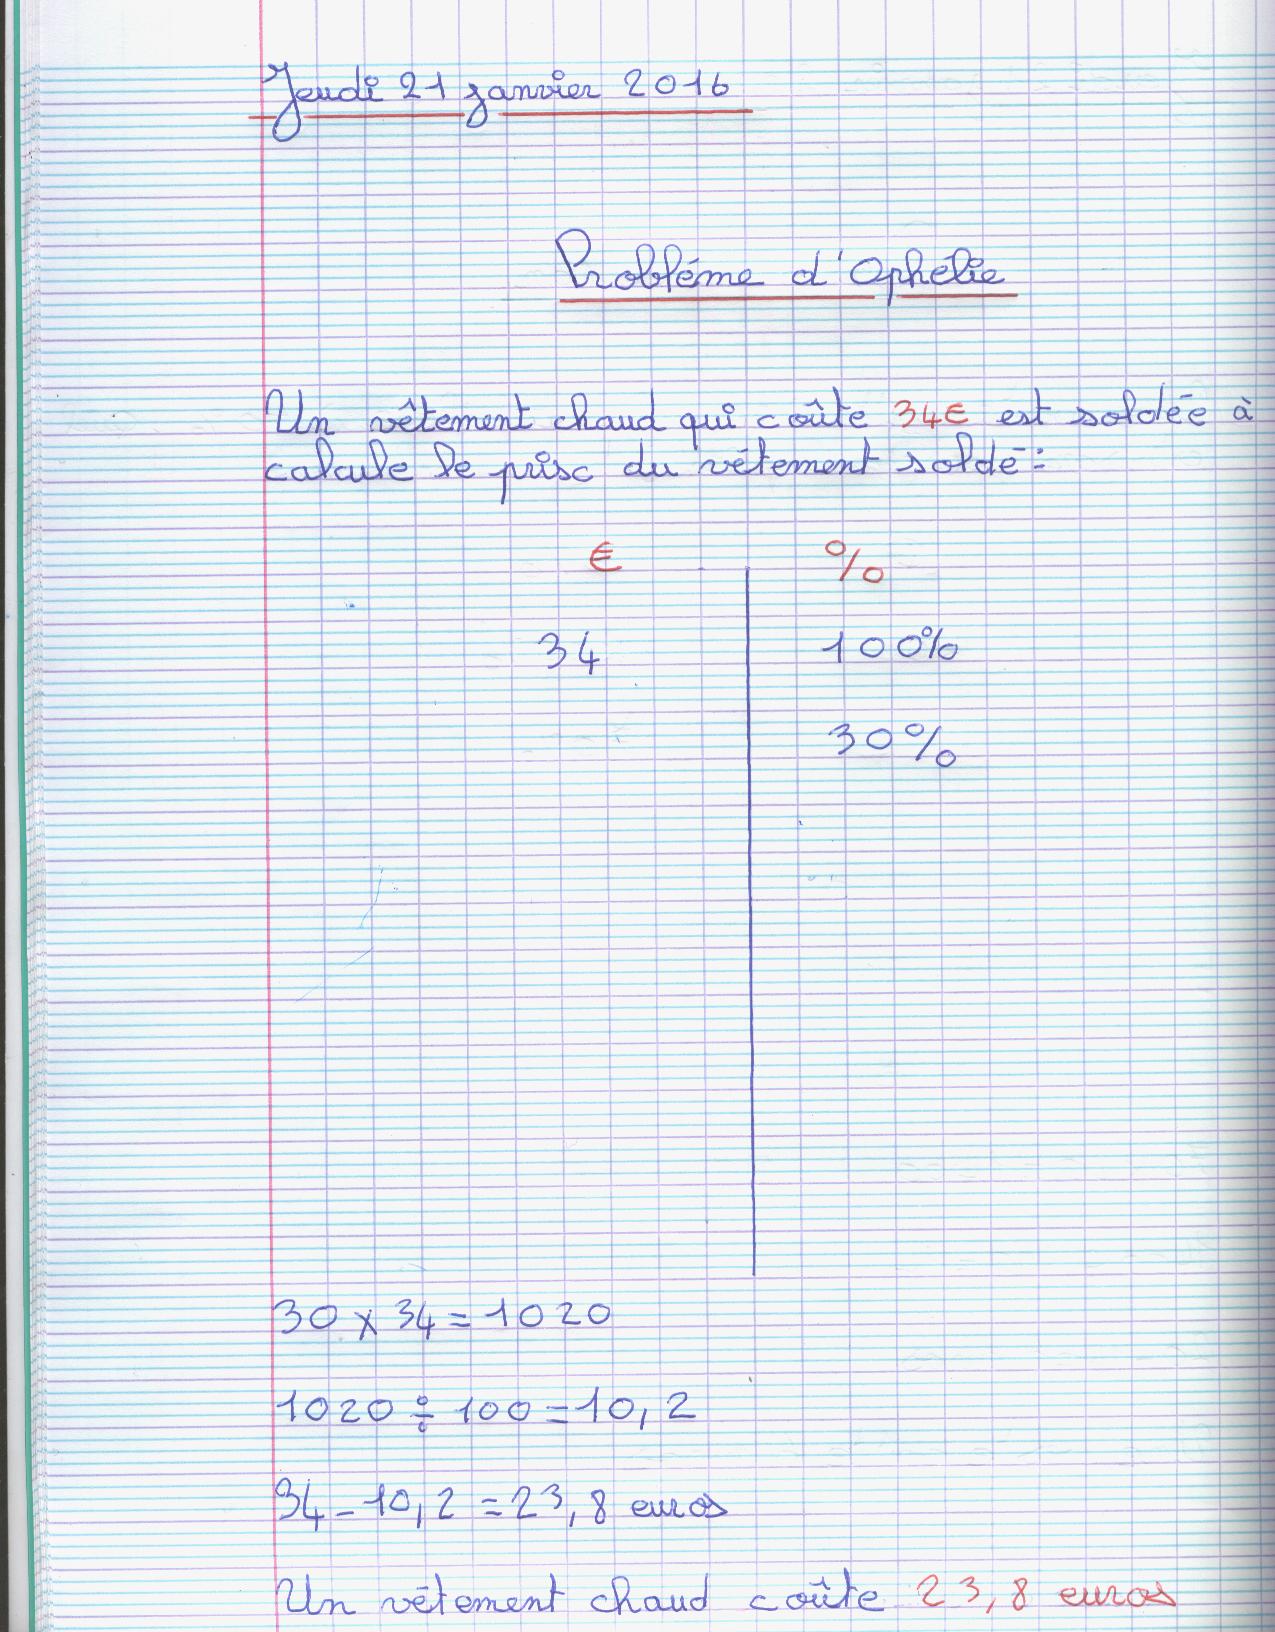 Jeudi 21 janvier 2016
Probléme d'Ophélie
Un vêtement chaud qui coûte 34€ est soldée à
calcule le prix du vêtement soldé :
€ %
34 100%
30%
30 x 34 = 1020
1020 ÷ 100 = 10,2
34 - 10,2 = 23,8 euros
Un vêtement chaud coûte 23,8 euros